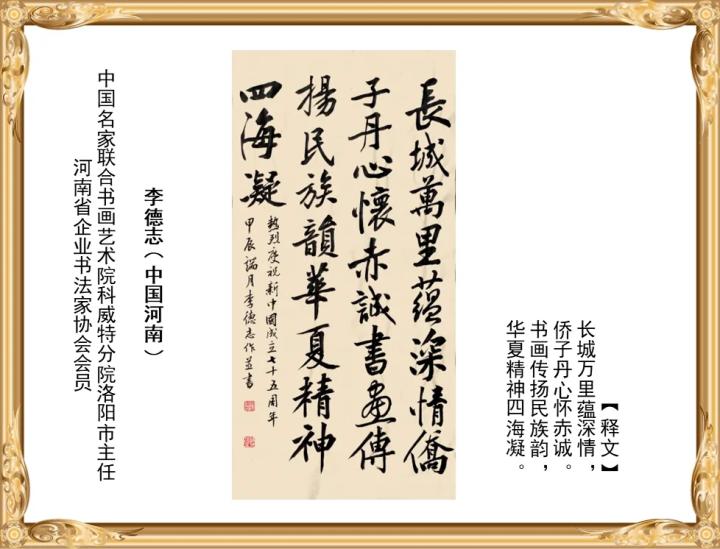 【释文】
长城万里蕴深情，
侨子丹心怀赤诚。
书画传扬民族韵，
华夏精神四海凝。
長城萬里蕴深情僑
子丹心懷赤誠書畫傳
揚民族韻華夏精神
四海凝
热烈庆祝新中國成立七十五周年
甲辰端月李德志作并書
李德志（中国河南）
中国名家联合书画艺术院科威特分院洛阳市主任
河南省企业书法家协会会员